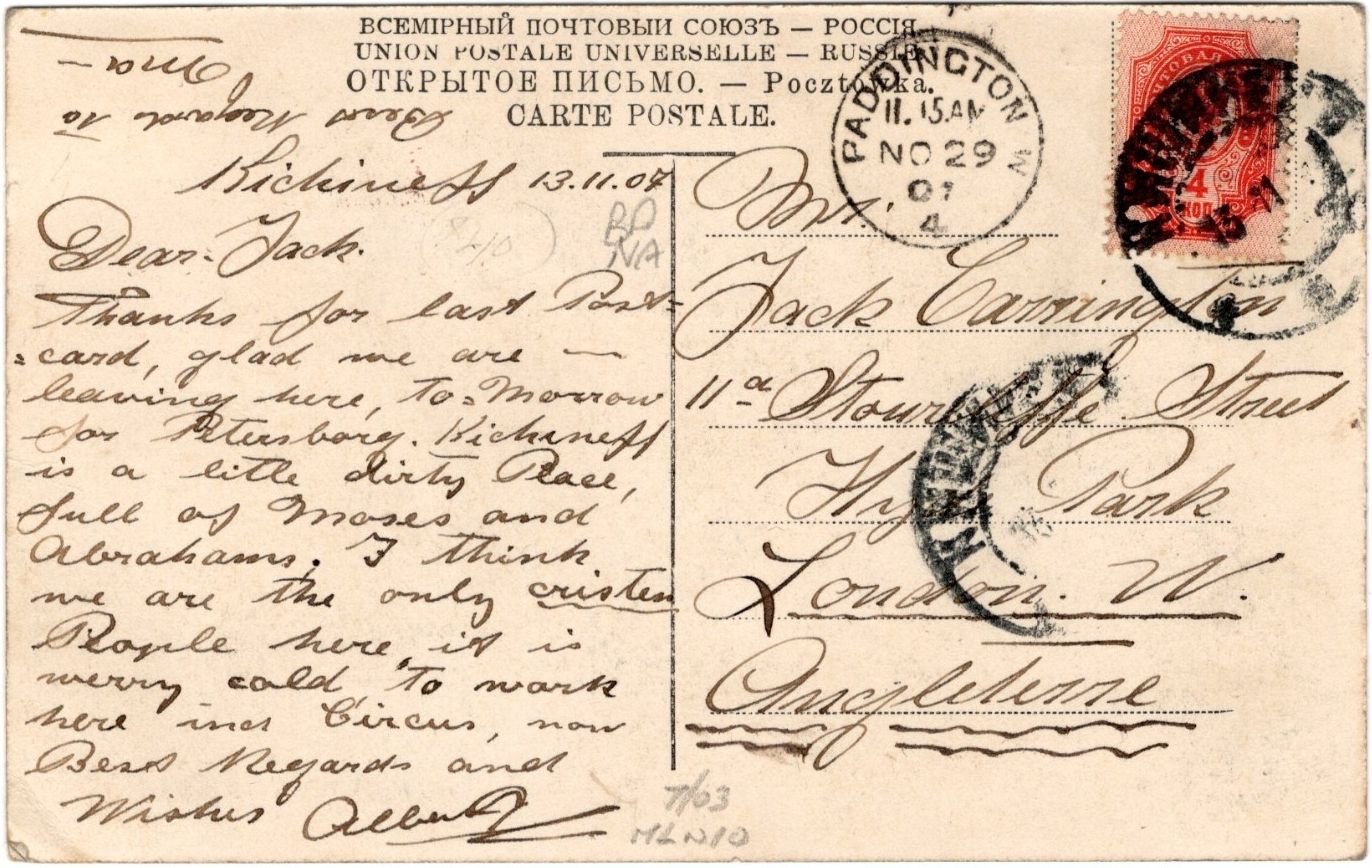 ВСЕМІРНЫЙ ПОЧТОВЫЙ СОЮЗЪ — РОССІЯ.
UNION POSTALE UNIVERSELLE — RUSSIE.
ОТКРЫТОЕ ПИСЬМО. — Pocztówka.
CARTE POSTALE.
Best Regards to
Ma—
Kichineff 13.11.07
Dear Jack.
Thanks for last Post=
=card, glad we are —
leaving here, to=Morrow
for Petersborg. Kichineff
is a little dirty Place,
full of Moses and
Abrahams. I think
we are the only cristen
People here, it is
werry cold, to work
here ind Circus, now
Best Regards and
Wishes Albert
PADDINGTON W
11.15AM
NO 29
07
4
4
КОП
13 11
Mr.
Jack Carrington
11a Street
Hyde Park
London. W.
Angleterre
BP
NA
7/03